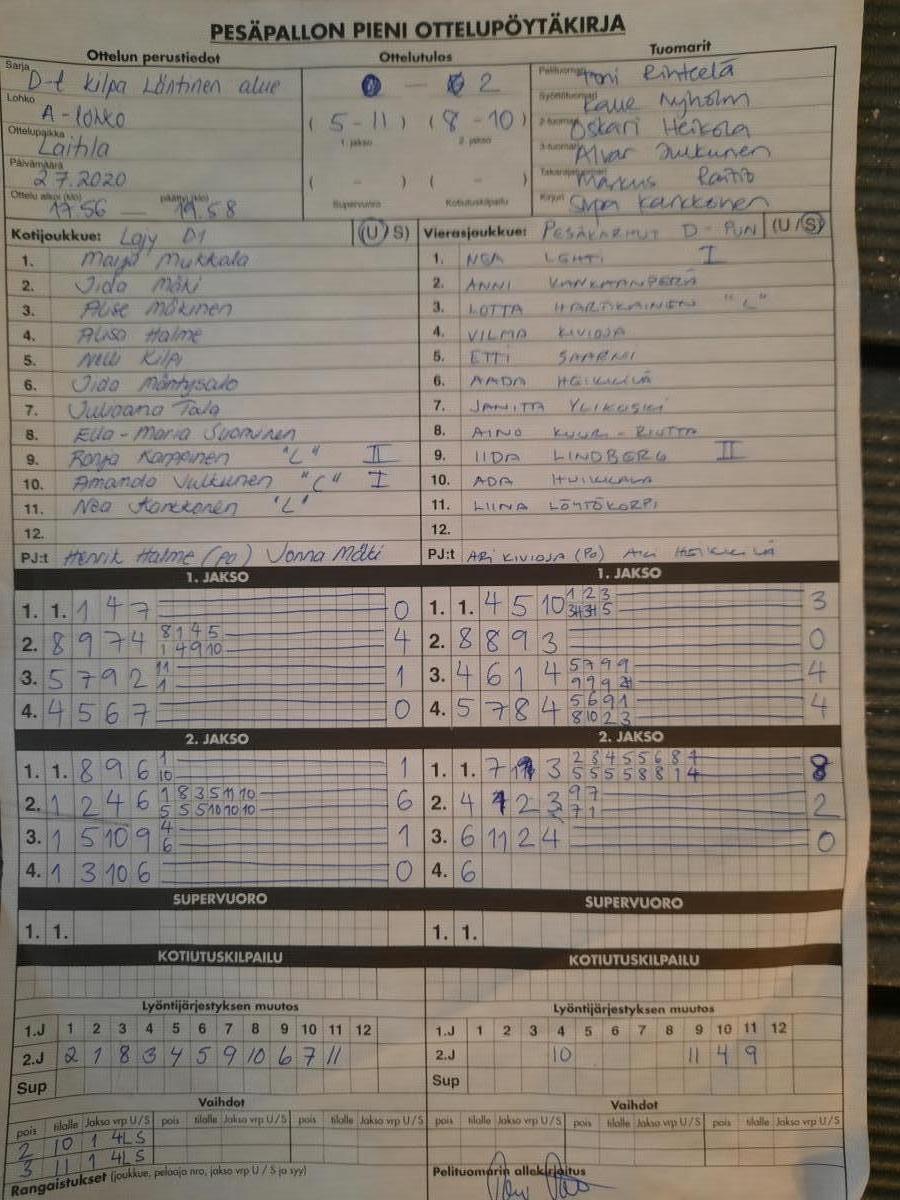 PESÄPALLON PIENI OTTELUPÖYTÄKIRJA
Ottelun perustiedot Ottelutulos Tuomarit
Sarja D-t kilpa Läntinen alue 0 — 2 Pelituomari Toni
Lohko A-lohko (5-11) (8-10) Syöttötuomari Kalle Nyholm
1. jakso 2. jakso
Ottelupaikka Laitila 2-tuomari Oskari Heikola
Päivämäärä 2.7.2020 ( - ) ( - ) 3-tuomari Alvar Julkunen
Ottelu alkoi (klo) 17.56 — päättyi (klo) 19.58 Supervuoro Kotiutuskilpailu Takarajatuomari Markus
Kirjuri Karkkonen
Kotijoukkue: Lajy D1 (U/S) Vierasjoukkue: PESÄKARHUT D-PUN (U/S)
1. Maija Mukkala 1. NEA LEHTI I
2. Iida Mäki 2. ANNI KANKAANPERÄ
3. Alise Mäkinen 3. LOTTA HARTIKAINEN "L"
4. Alisa Halme 4. VILMA KIVIOJA
5. Nelli Kilpi 5. ETTI SAARNI
6. Iida Mäntysalo 6. AADA HEIKKILÄ
7. Juliaana Tala 7. JANITTA YLIKOSKI
8. Ella-Maria Suominen 8. AINO KUURI-RIUTTA
9. Ronja Karppinen "L" II 9. IIDA LINDBERG II
10. Amanda Julkunen "C" I 10. ADA HUIKKALA
11. Nea Karkkonen "L" 11. LIINA LÖYTÖKORPI
12. 12.
PJ:t Henrik Halme (PO) Jonna Mäki PJ:t ARI KIVIOJA (PO) AKI HEIKKILÄ
1. JAKSO 1. JAKSO
1. 1. 1 4 7 0 1. 1. 4 5 10 1 2 3 3
2. 8 9 7 4 8 1 4 5 4 2. 8 8 9 3 0
1 4 9 10
3. 5 7 9 2 11 1 3. 4 6 1 4 5 7 9 9 4
1 9 9 9
4. 4 5 6 7 0 4. 5 7 8 4 5 6 9 1 4
8 10 2 3
2. JAKSO 2. JAKSO
1. 1. 8 9 6 1 1 1. 1. 7 3 2 3 4 5 5 6 8 7 8
10 5 5 5 5 8 8 1 4
2. 1 2 4 6 1 8 3 5 11 10 6 2. 4 1 2 3 9 7 2
5 5 5 10 10 10 7 1
3. 1 5 10 9 4 1 3. 6 11 2 4 0
6
4. 1 3 10 6 0 4. 6
SUPERVUORO SUPERVUORO
1. 1. 1. 1.
KOTIUTUSKILPAILU KOTIUTUSKILPAILU
Lyöntijärjestyksen muutos Lyöntijärjestyksen muutos
1.J 1 2 3 4 5 6 7 8 9 10 11 12 1.J 1 2 3 4 5 6 7 8 9 10 11 12
2.J 2 1 8 3 4 5 9 10 6 7 11 2.J 10 11 4 9
Sup Sup
Vaihdot Vaihdot
pois tilalle Jakso vrp U/S pois tilalle Jakso vrp U/S pois tilalle Jakso vrp U/S pois tilalle Jakso vrp U/S pois tilalle Jakso vrp U/S pois tilalle Jakso vrp U/S
2 10 1 4L S
3 11 1 4L S
Rangaistukset (joukkue, pelaaja nro, jakso vrp U / S ja syy) Pelituomarin allekirjoitus